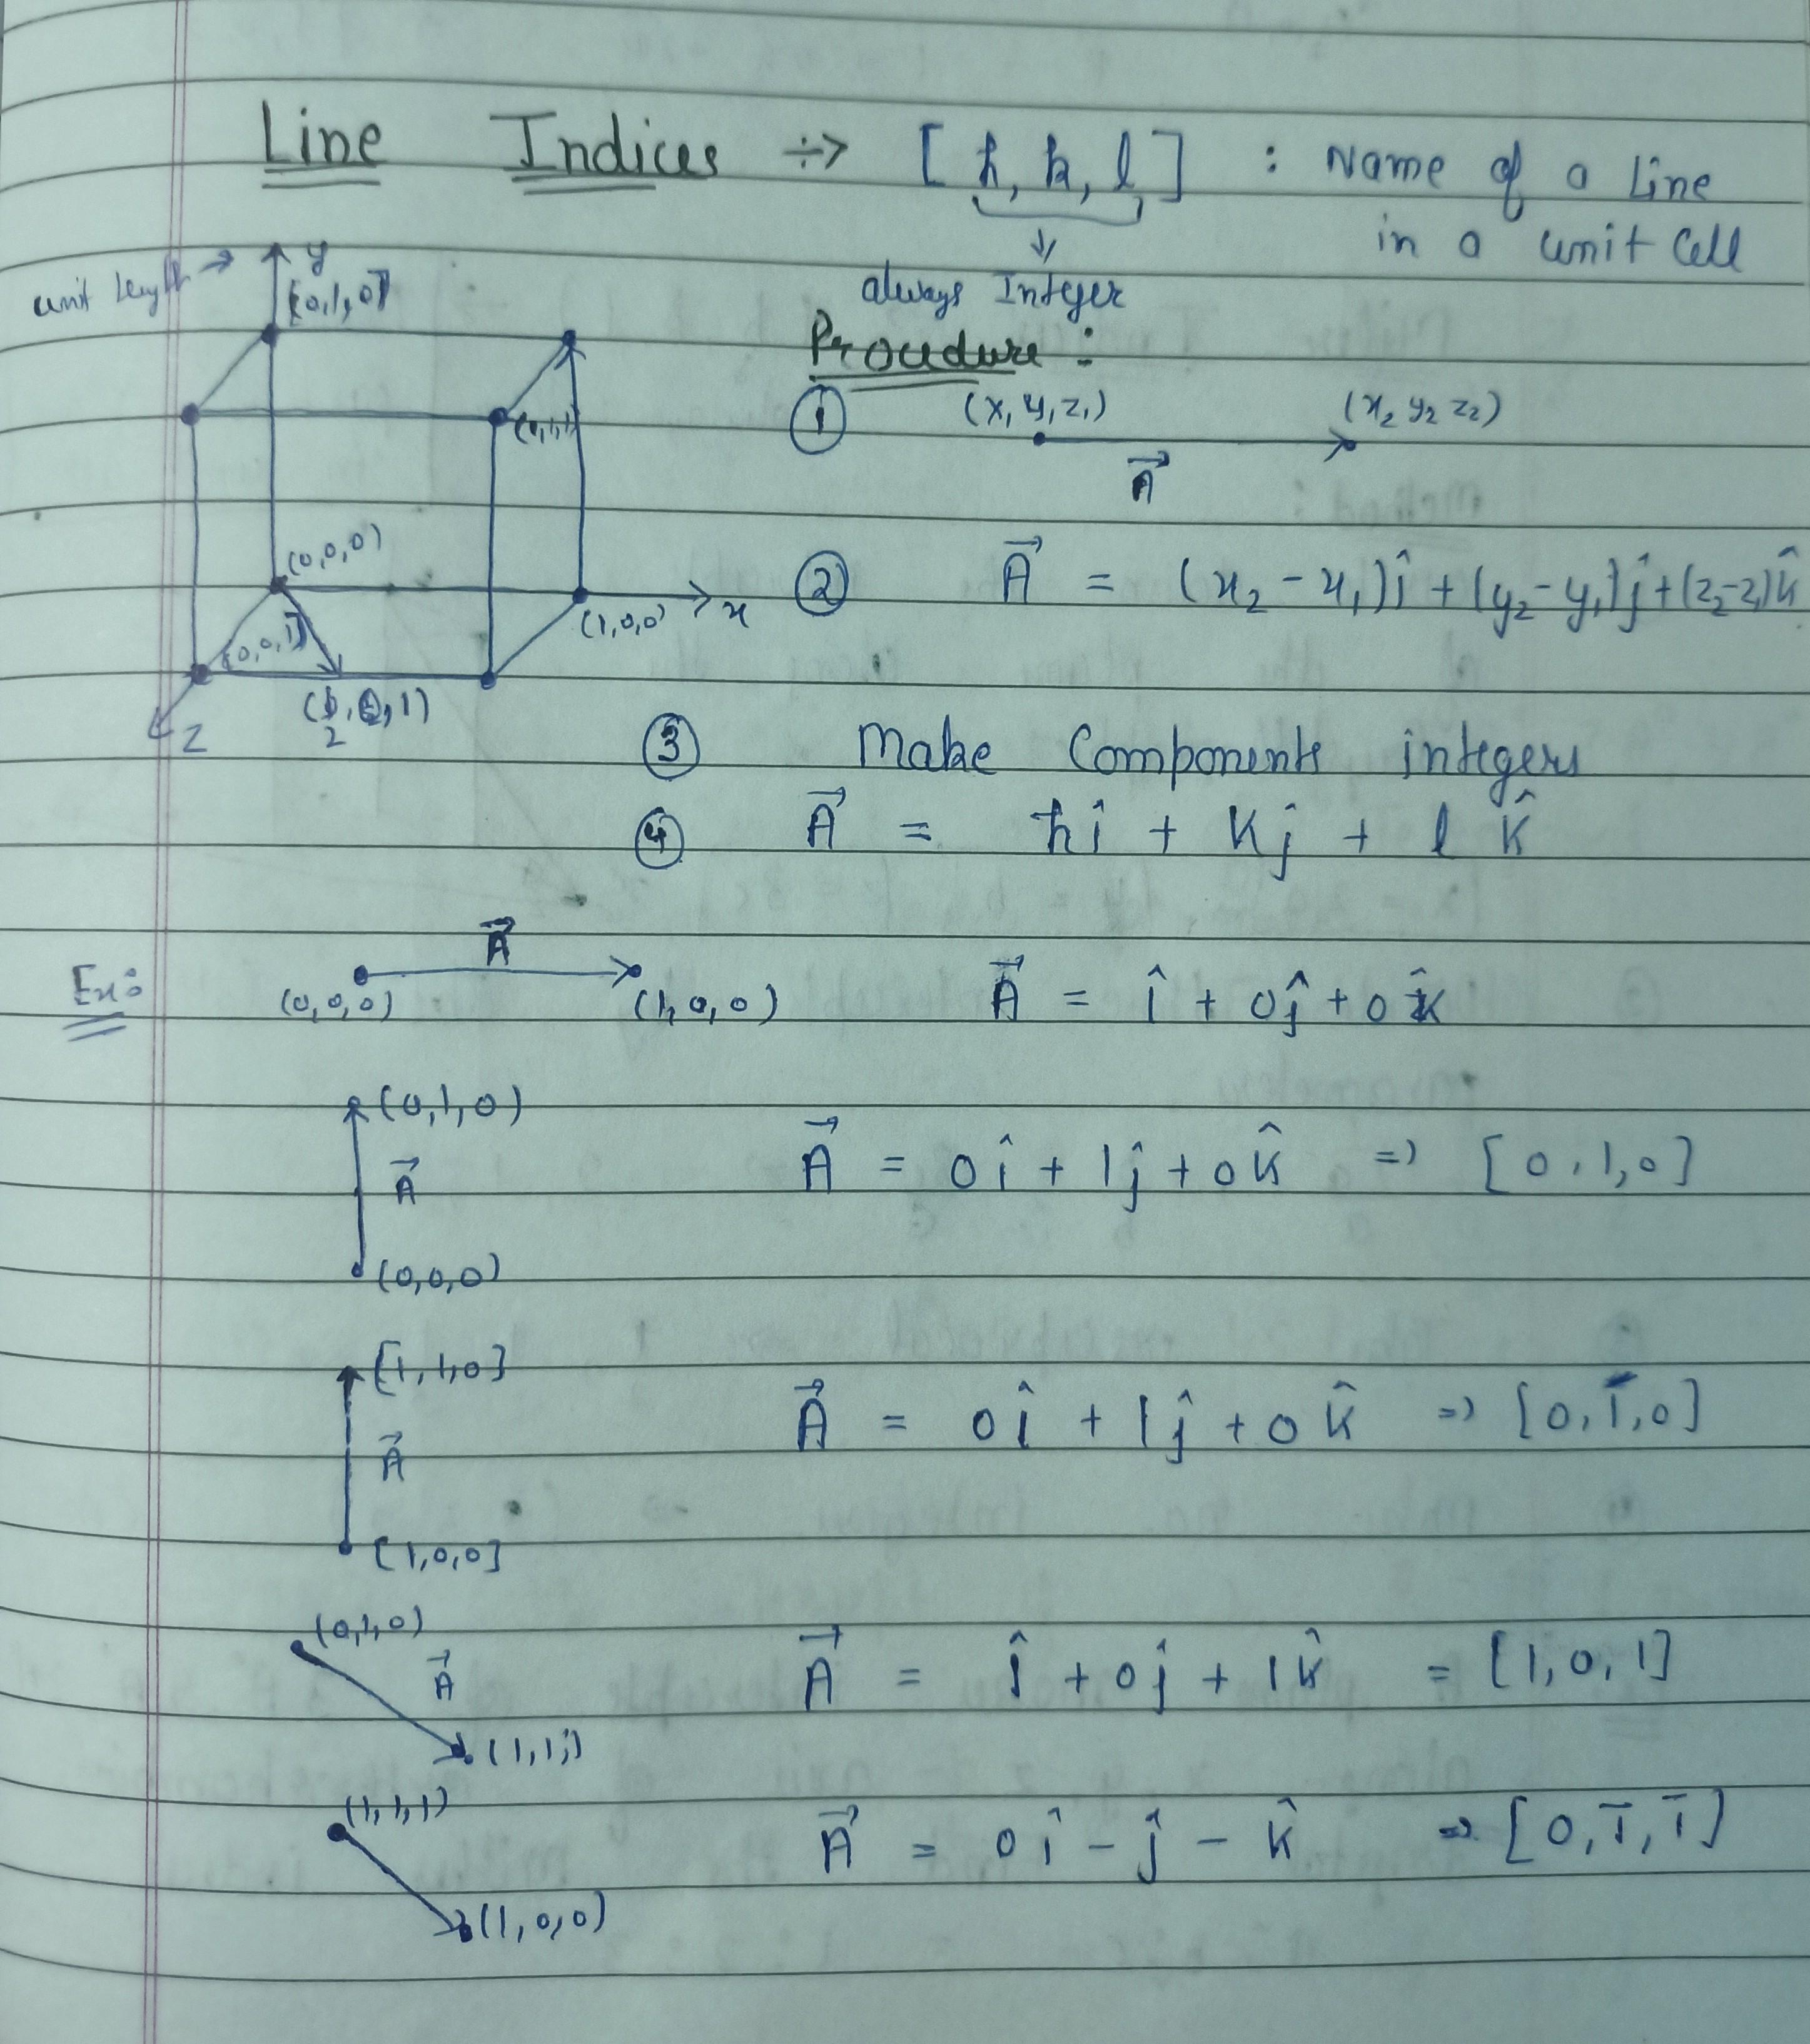 Line Indices ÷> [h, k, l] : Name of a Line
in a unit Cell
always Integer
unit length → y
[0,1,0]
(1,1,1)
(0,0,0)
x
(1,0,0)
(0,0,1)
(1/2,0,1)
z
Procedure :
① (x₁ y₁ z₁) (x₂ y₂ z₂)
A⃗
② A⃗ = (x₂ - x₁)î + (y₂ - y₁)ĵ + (z₂ - z₁)k̂
③ Make Components integers
④ A⃗ = hî + kĵ + l k̂
Ex: A⃗
(0,0,0) (1,0,0) A⃗ = î + 0ĵ + 0k̂
(0,1,0)
A⃗ A⃗ = 0î + 1ĵ + 0k̂ => [0,1,0]
(0,0,0)
[1,1,0]
A⃗ A⃗ = 0î + 1ĵ + 0k̂ => [0,1̄,0]
[1,0,0]
(0,1,0)
A⃗ A⃗ = î + 0ĵ + 1k̂ = [1,0,1]
(1,1,1)
(1,1,1)
A⃗ = 0î - ĵ - k̂ => [0,1̄,1̄]
(1,0,0)